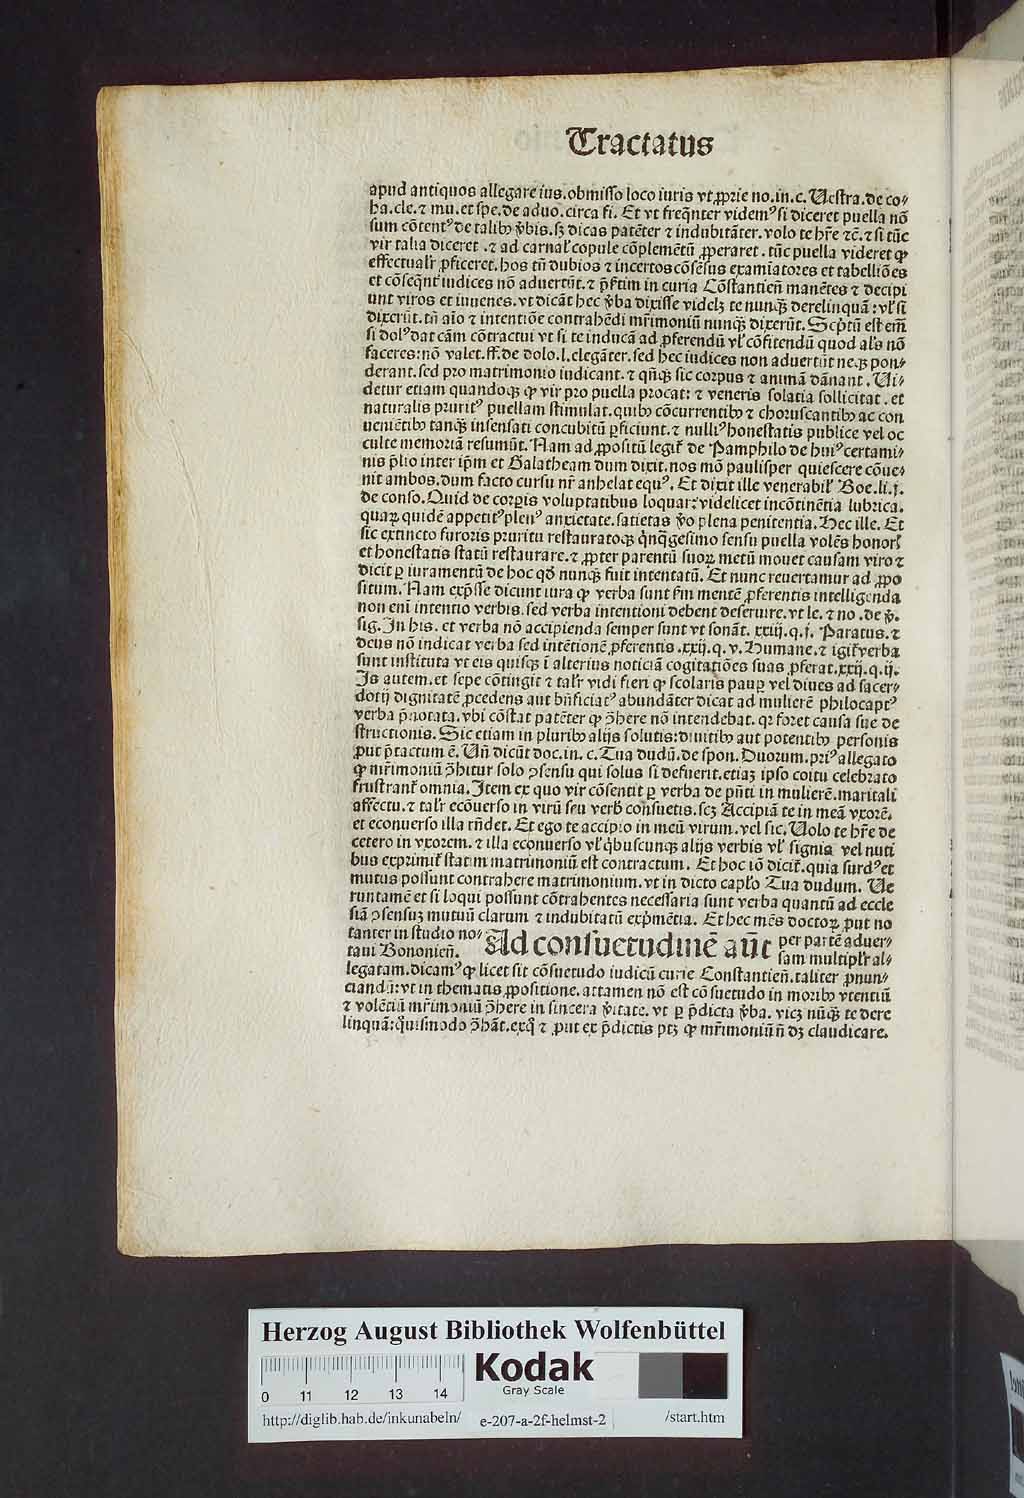 Tractatus
apud antiquos allegare ius. obmisso loco iuris vt ꝓprie no. in. c. Uestra. de co⸗
ha. cle. ⁊ mu. et spe. de aduo. circa fi. Et vt freq̄nter videmꝰ si diceret puella nō
sum cōtentꝰ de talibꝰ v̓bis. sꝫ dicas patēter ⁊ indubitāter. volo te hr̄e ⁊c̄. ⁊ si tūc
vir talia diceret . ⁊ ad carnał copule cōplemētū ꝓperaret . tūc puella videret ꝙ
effectualr̄ ꝓficeret. hos tn̄ dubios ⁊ incertos cōsēsus examiatores et tabelliōes
et cōseq̄nt̓ iudices nō aduertūt. ⁊ p̄ſtim in curia Cōstantieñ manētes ⁊ decipi
unt viros et iuuenes. vt dicāt hec v̓ba dixisse videlꝫ te nunqꝫ̄ derelinquā : vł si
dixerūt. tn̄ aīo ⁊ intentiōe contrahēdi mr̄imoniū nunqꝫ̄ dixerūt. Scp̄tū est em̄
si dolꝰ dat cām cōtractui vt si te inducā ad ꝓferendū vł cōfitendū quod als nō
faceres: nō valet. ff. de dolo. l. elegāter. sed hec iudices non aduertūt neqꝫ pon⸗
derant. sed pro matrimonio iudicant. ⁊ qn̄qꝫ sic corpus ⁊ animā dānant . Ui⸗
detur etiam quandoqꝫ ꝙ vir pro puella procat: ⁊ veneris solatia sollicitat . et
naturalis pruritꝰ puellam stimulat. quibꝰ cōcurrentibꝰ ⁊ choruscantibꝰ ac con
ueniētibꝰ tanqꝫ̄ insensati concubitū ꝑficiunt. ⁊ nulliꝰ honestatis publice vel oc
culte memoriā resumūt. Nam ad ꝓpositū legit̓ de Pamphilo de huiꝰ certami⸗
nis p̄lio inter ip̄m et Galatheam dum dixit. nos mō paulisper quiescere cōue⸗
nit ambos. dum facto cursu nr̄ anhelat equꝰ. Et dixit ille venerabił Boe. li. j.
de conso. Quid de corꝑis voluptatibus loquar: videlicet incōtinētia lubrica.
quaꝝ quidē appetitꝰ plenꝰ anxietate. satietas v̓o plena penitentia. Hec ille. Et
sic extincto furoris pruritu restauratoqꝫ qn̄qgesimo sensu puella volēs honorē
et honestatis statū restaurare. ⁊ ꝓpter parentū suoꝝ metū mouet causam viro ⁊
dicit ꝑ iuramentū de hoc qd̓ nunqꝫ̄ fuit intentatū. Et nunc reuertamur ad ꝓpo
situm. Nam exp̄sse dicunt iura ꝙ verba sunt ẜm mentē ꝓferentis intelligenda
non eni̅ intentio verbis. sed verba intentioni debent deseruire. vt le. ⁊ no. de v̓.
sig. In his. et verba nō accipienda semper sunt vt sonāt. xxiij. q. j. Paratus. ⁊
deus nō indicat verba sed intētionē ꝓferentis. xxij. q. v. Humane. ⁊ igit̓ verba
sunt instituta vt eis quisqꝫ ī alterius noticiā cogitatiōes suas ꝓferat. xxij. q. ij.
Is autem. et sepe cōtingit ⁊ talr̄ vidi fieri ꝙ scolaris pauꝑ vel diues ad sacer⸗
dotij dignitatē ꝓcedens aut bn̄ficiatꝰ abundāter dicat ad mulierē philocaptꝰ
verba p̄notata. vbi cōstat patēter ꝙ ꝯ̄here nō intendebat. qꝛ foret causa sue de
structionis. Sic etiam in pluribꝰ alijs solutis: diuitibꝰ aut potentibꝰ personis
ꝓut p̄tactum ē. Uñ dicūt doc. in. c. Tua dudū. de spon. Duorum. priꝰ allegato
ꝙ mr̄imoniū ꝯ̄hitur solo ꝯsensu qui solus si defuerit. etiaꝫ ipso coitu celebrato
frustrant̓ omnia. Item ex quo vir cōsentit ꝑ verba de pn̄ti in mulierē. maritali
affectu. ⁊ talr̄ ecōuerso in virū seu verb̓ consuetis. scꝫ Accipiā te in meā vxorē.
et econuerso illa rn̄det. Et ego te accipio in meū virum. vel sic. Uolo te hr̄e de
cetero in vxorem. ⁊ illa econuerso vł q̓buscunqꝫ alijs verbis vł signis vel nuti
bus exprimit̓ statim matrimoniū est contractum. Et hoc iō dicit̓. quia surdꝰ et
mutus possunt contrahere matrimonium. vt in dicto caplo Tua dudum. Ue
runtamē et si loqui possunt cōtrahentes necessaria sunt verba quantū ad eccle
siā ꝯsensuꝫ mutuū clarum ⁊ indubitatū exp̄mētia. Et hec mēs doctoꝝ ꝓut no
tanter in studio no⸗
tani Bononieñ.
Ad consuetudinē aūt
per partē aduer⸗
sam multiplr̄ al⸗
legatam. dicamꝰ ꝙ licet sit cōsuetudo iudicū curie Constantieñ. taliter ꝓnun⸗
ciandū: vt in thematis ꝓpositione. attamen nō est cōsuetudo in moribꝰ vtentiū
⁊ volētiū mr̄imoniū ꝯ̄here in sincera v̓itate. vt ꝑ p̄dicta v̓ba. vicꝫ nūqꝫ̄ te dere
linquā: q̓uismodo ꝯ̄hāt. exq̓ ⁊ ꝓut ex p̄dictis ptꝫ ꝙ mr̄imoniū ñ dꝫ claudicare.
Herzog August Bibliothek Wolfenbüttel
Kodak
Gray Scale
0 11 12 13 14
http://diglib.hab.de/inkunabeln/ e-207-a-2f-helmst-2 /start.htm